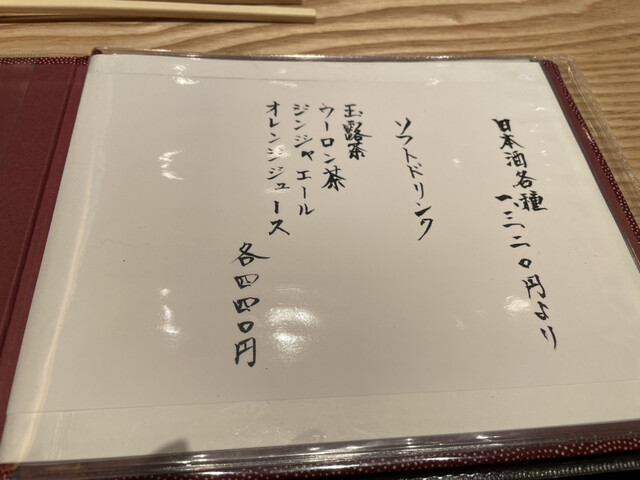 日本酒各種 一、三二〇円より
ソフトドリンク
玉露茶
ウーロン茶
ジンジャエール
オレンジジュース
各四四〇円